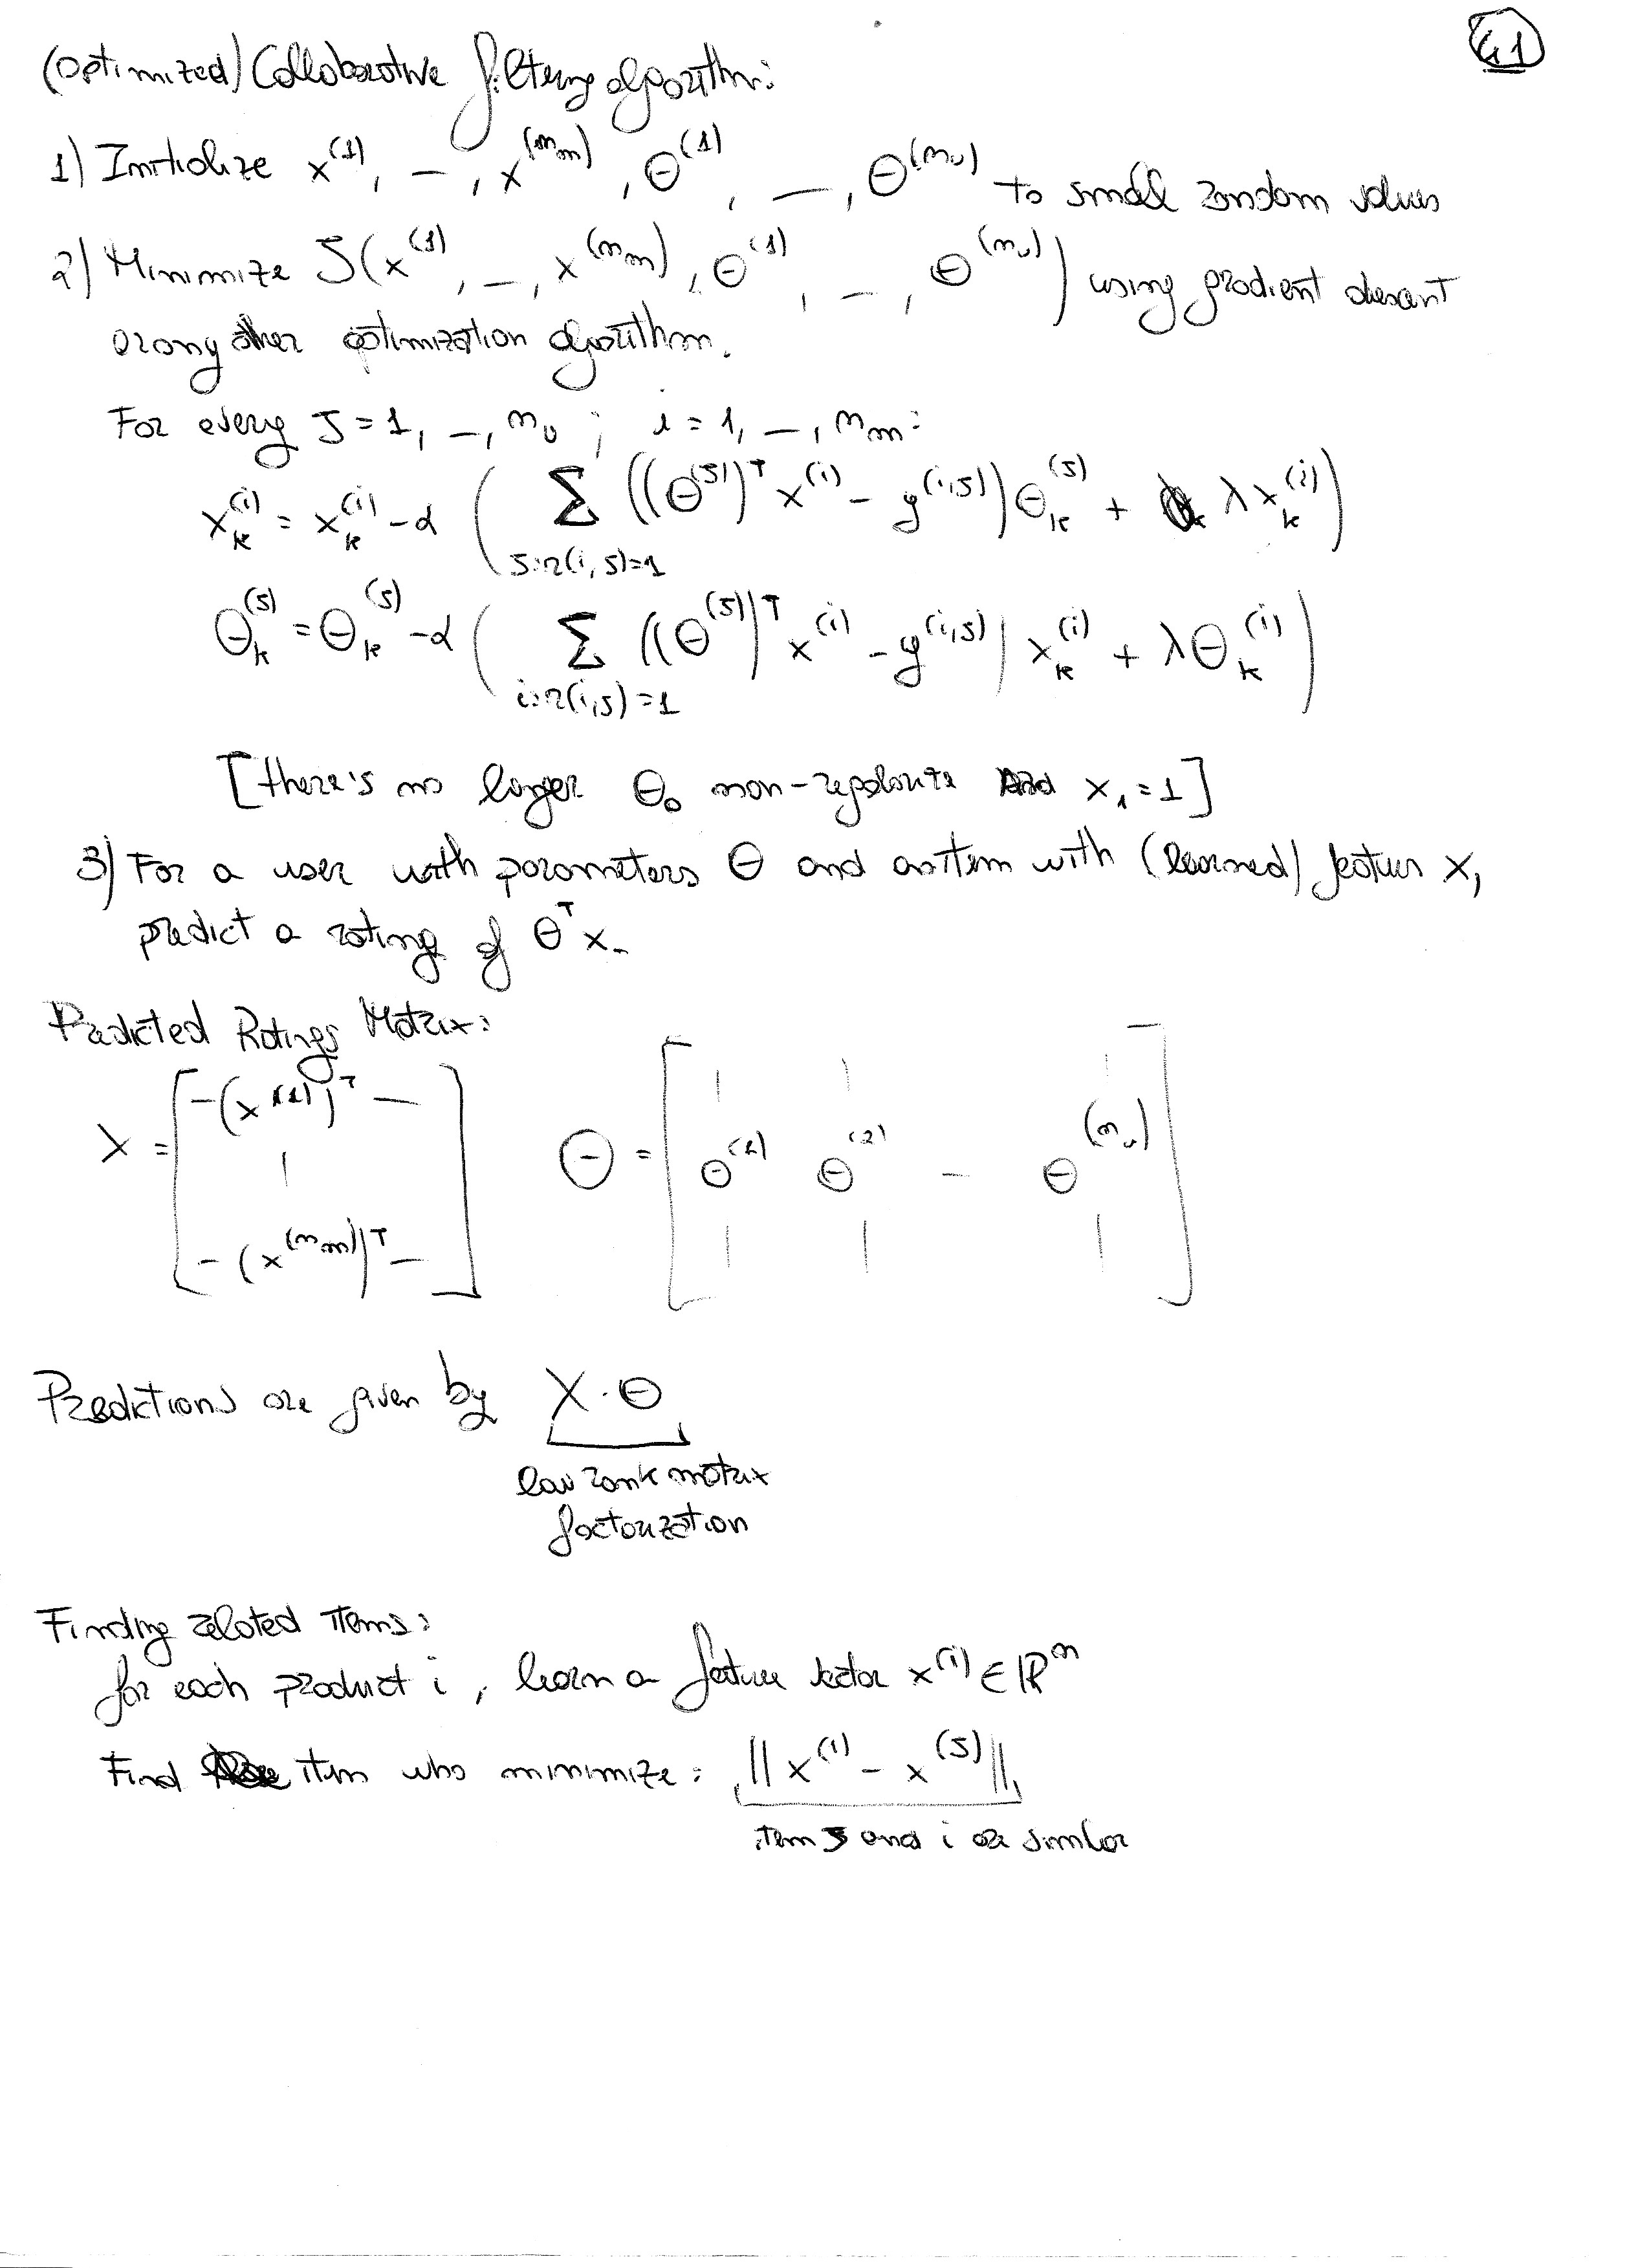 41
(optimized) Collaborative filtering algorithm:
1) Initialize x^(1), -, x^(n_m), θ^(1), -, θ^(n_u) to small random values
2) Minimize J(x^(1), -, x^(n_m), θ^(1), -, θ^(n_u)) using gradient descent
or any other optimization algorithm.
For every J = 1, -, n_u ; i = 1, -, n_m:
x_k^(i) = x_k^(i) - α ( Σ_{J:r(i,J)=1} ((θ^(J))^T x^(i) - y^(i,J)) θ_k^(J) + λ x_k^(i) )
θ_k^(J) = θ_k^(J) - α ( Σ_{i:r(i,J)=1} ((θ^(J))^T x^(i) - y^(i,J)) x_k^(i) + λ θ_k^(i) )
[there's no longer θ_0 non-regolarize and x_1 = 1]
3) For a user with parameters θ and an item with (learned) features x,
predict a rating of θ^T x.
Predicted Ratings Matrix:
X = [ -(x^(1))^T - | -(x^(n_m))^T - ] Θ = [ | | | θ^(1) θ^(2) - θ^(n_u) | | | ]
Predictions are given by X · Θ
low rank matrix
factorization
Finding related items:
for each product i, learn a feature vector x^(i) ∈ ℝ^n
Find item who minimize: ||x^(i) - x^(J)||
item J and i are similar